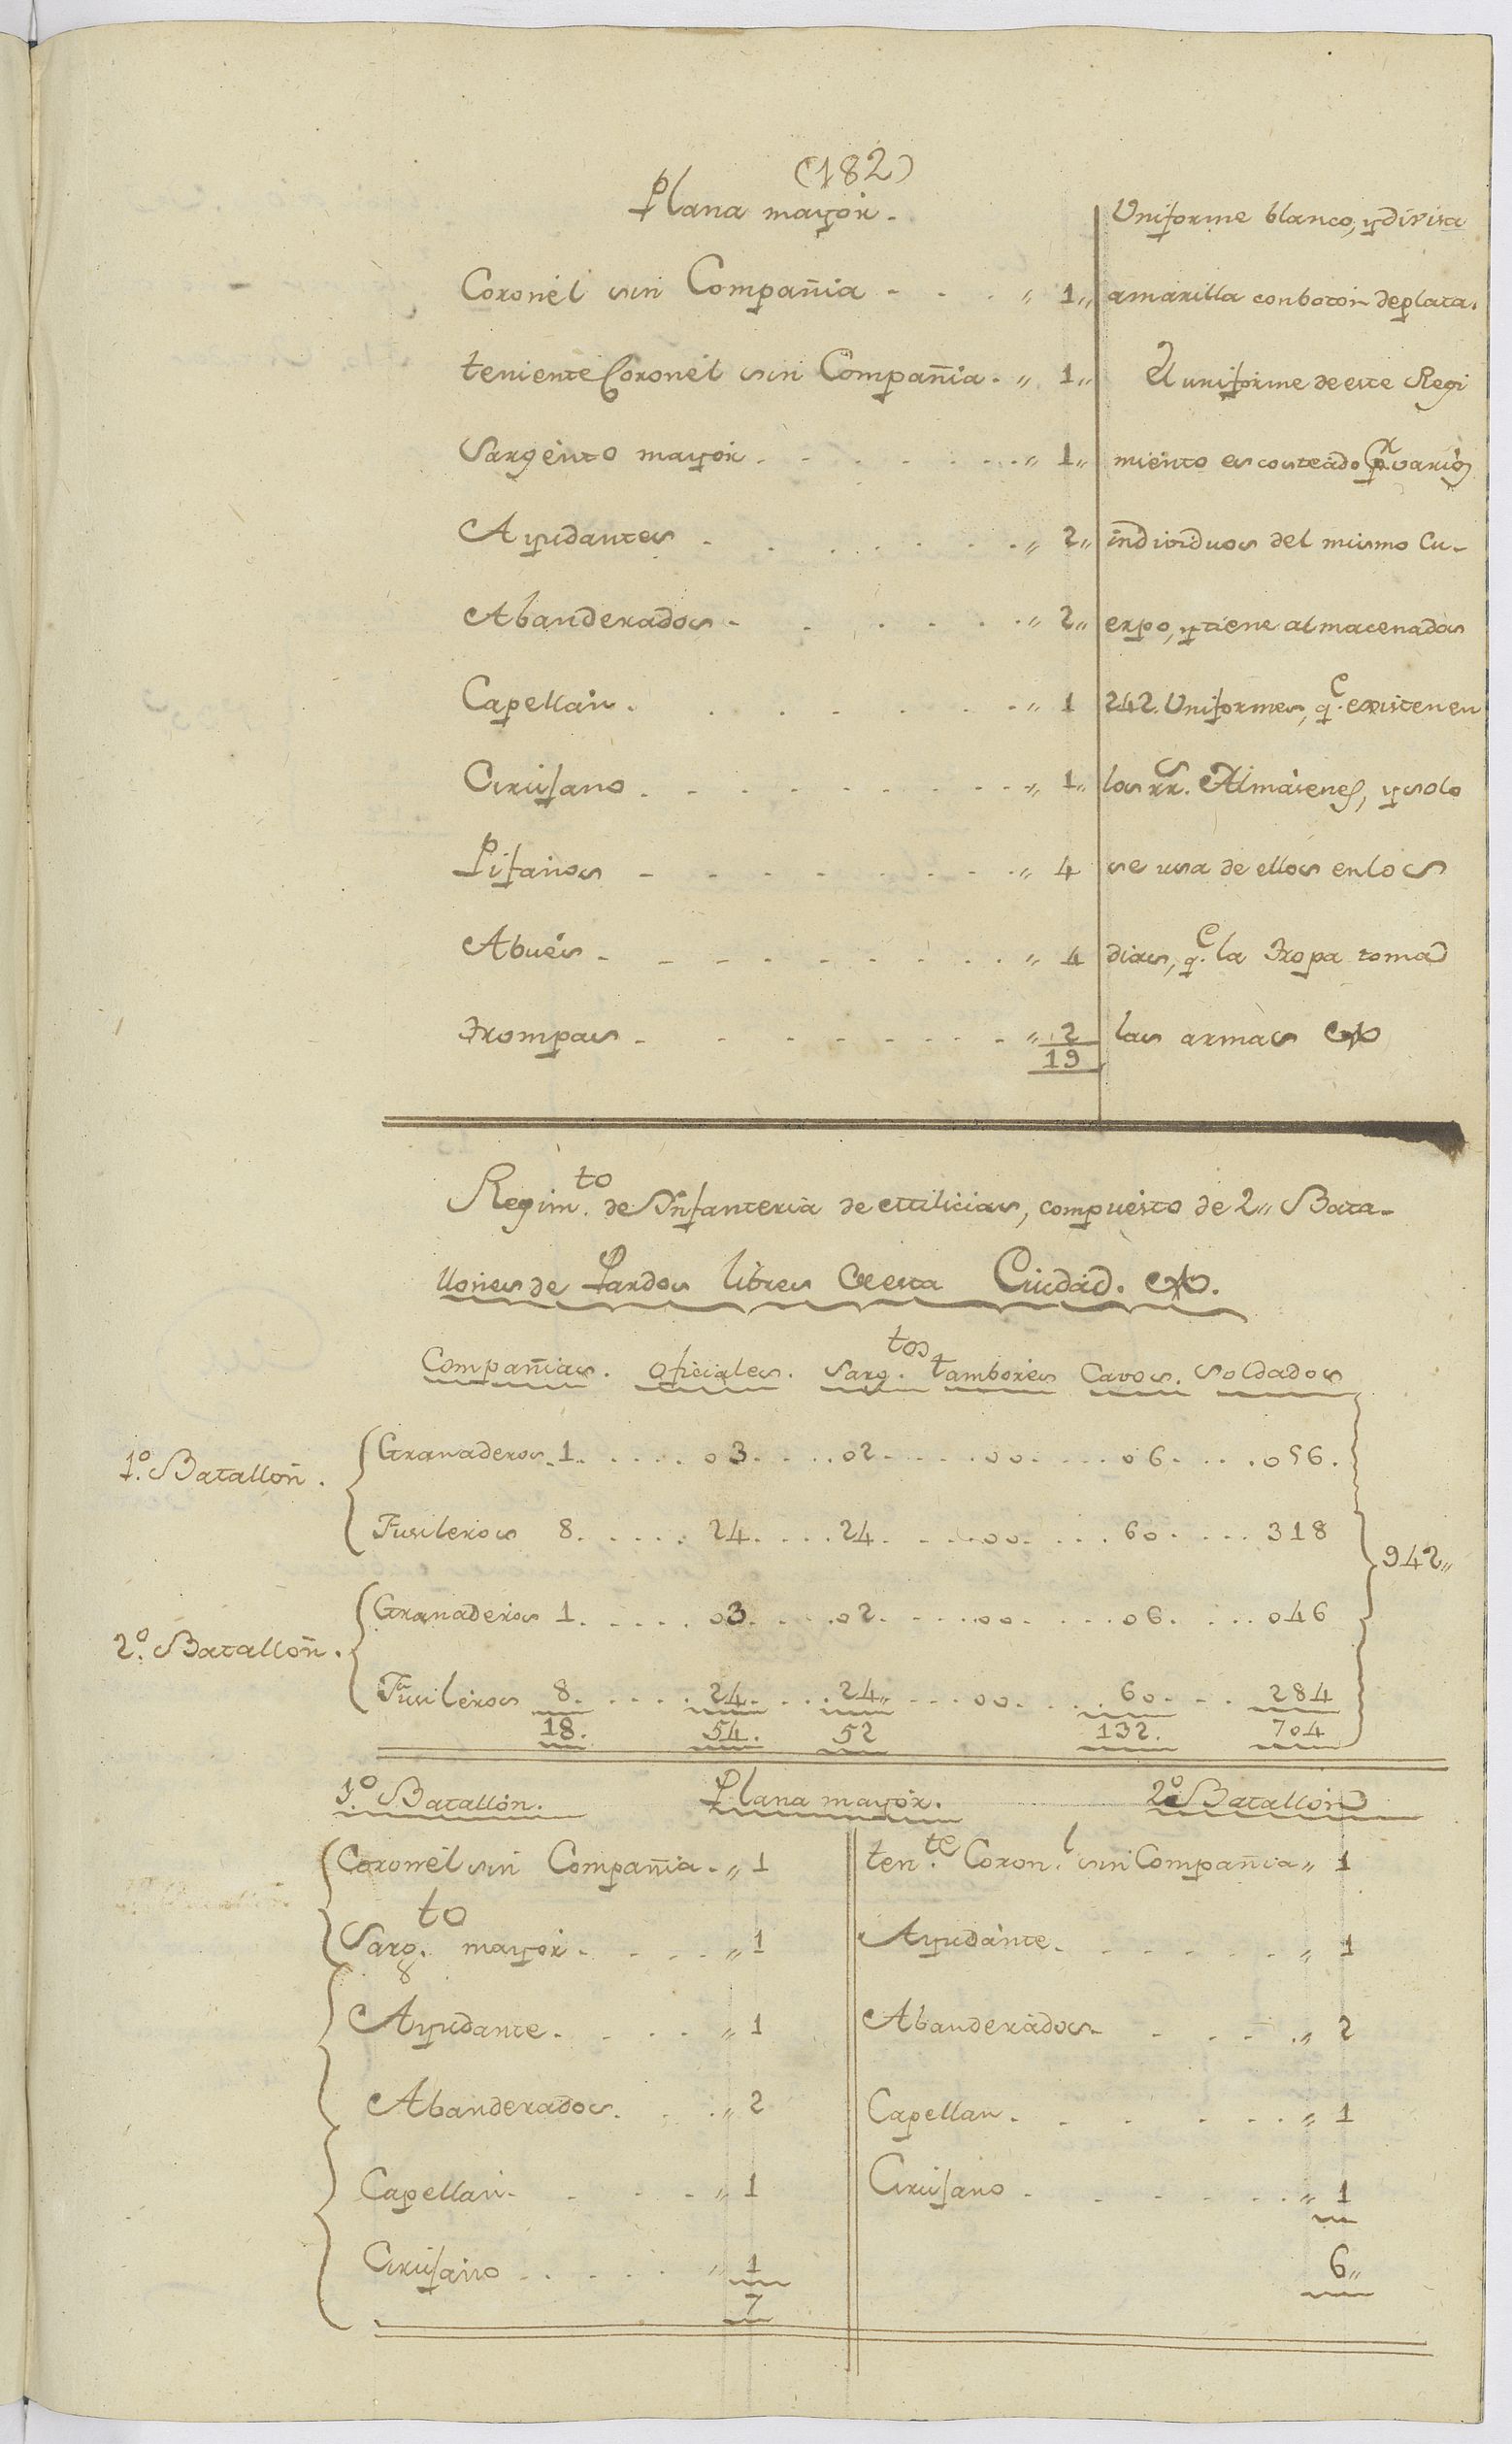 (182)
Plana mayor.
Coronél sin Compañia - . . „ 1„
teniente Coronél sin Compañia. „ 1„
Sargénto mayor. . . . . . . . „ 1„
Ayudantes . . . . . . . . „ 2„
Abanderados . . . . . . . „ 2„
Capellan. . . . . . . . „ 1
Cirujano . . . . . . . . . „ 1„
Pifanos - - - - - . . . „ 4
Abués - - - - . . . . . „ 4
Trompas - . . . . . . . „ 2
19
Uniforme blanco, y divisa
amarilla con boton de plata.
El uniforme de este Regi
miénto es costeádo pr. varios
individuos del mismo Cu-
erpo, y tiene almacenados
242. Uniformes, qe. existen en
los rrs. Almácenes, y solo
se usa de ellos en los
dias, qe. la Tropa toma
las armas
Regimto. de Ynfanteria de Milicias, compuésto de 2„ Bata-
llones de Pardos libres de esta Ciudád.
Compañias. oficiales. Sargtos. tambores Cavos. Soldados
1º. Batallon.
Granaderos. 1. . . . . . 03. . . . 02. . . . . 00. . . . 06. . . . 056.
Fusileros 8. . . . . . 24. . . . 24. . . . . 00. . . . 60. . . . 318
942„
2º. Batallon.
Granaderos 1. . . . . . 03. . . . 02. . . . . 00. . . . 06. . . . 046
Fusileros 8. . . . . . 24. . . . 24„ . . . 00. . . . 60. . . . 284
18. 54. 52 132. 704
1º. Batallón. Plana mayor. 2º Batallón
Coronél sin Compañia. „ 1
Sargto. mayor. . . . . „ 1
Ayudante. . . . . „ 1
Abanderados. . . . „ 2
Capellan. . . . . „ 1
Cirujano . . . . . „ 1
7
tente. Coronl. sin Compañia „ 1
Ayudánte. . . . . . . „ 1
Abanderádos. . . . . „ 2
Capellan. . . . . . . . „ 1
Cirujano . . . . . . . „ 1
6„